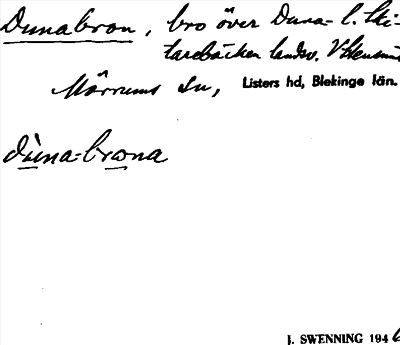 Dunabron, bro över Duna- l. Ski-
tarebäcken landsv.
Mörrums sn, Listers hd, Blekinge län.
dùna-brona
J. SWENNING 194